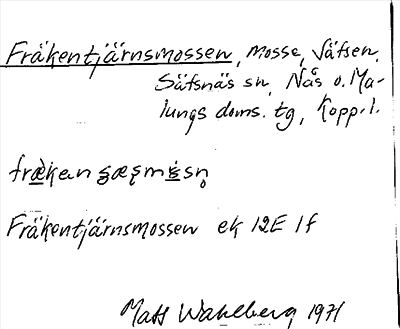 Fräkentjärnsmossen, mosse, Säfsen,
Säfsnäs sn, Nås o. Ma-
lungs doms. tg, Kopp. l.
fræ̀kan
Fräkentjärnsmossen ek 12E 1f
Mats Wahlberg 1971